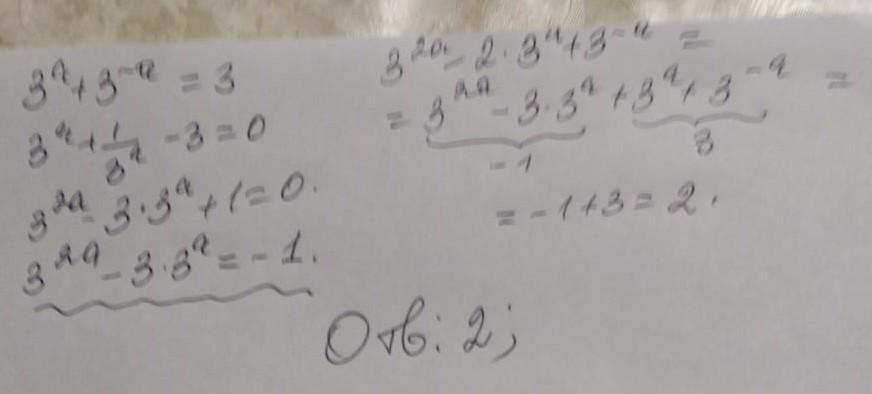 3^a + 3^-a = 3
3^a + 1/3^a - 3 = 0
3^2a - 3 · 3^a + 1 = 0.
3^2a - 3 · 3^a = - 1.
3^2a - 2 · 3^a + 3^-a =
= 3^2a - 3 · 3^a + 3^a + 3^-a =
-1 3
= -1 + 3 = 2.
Отв: 2;